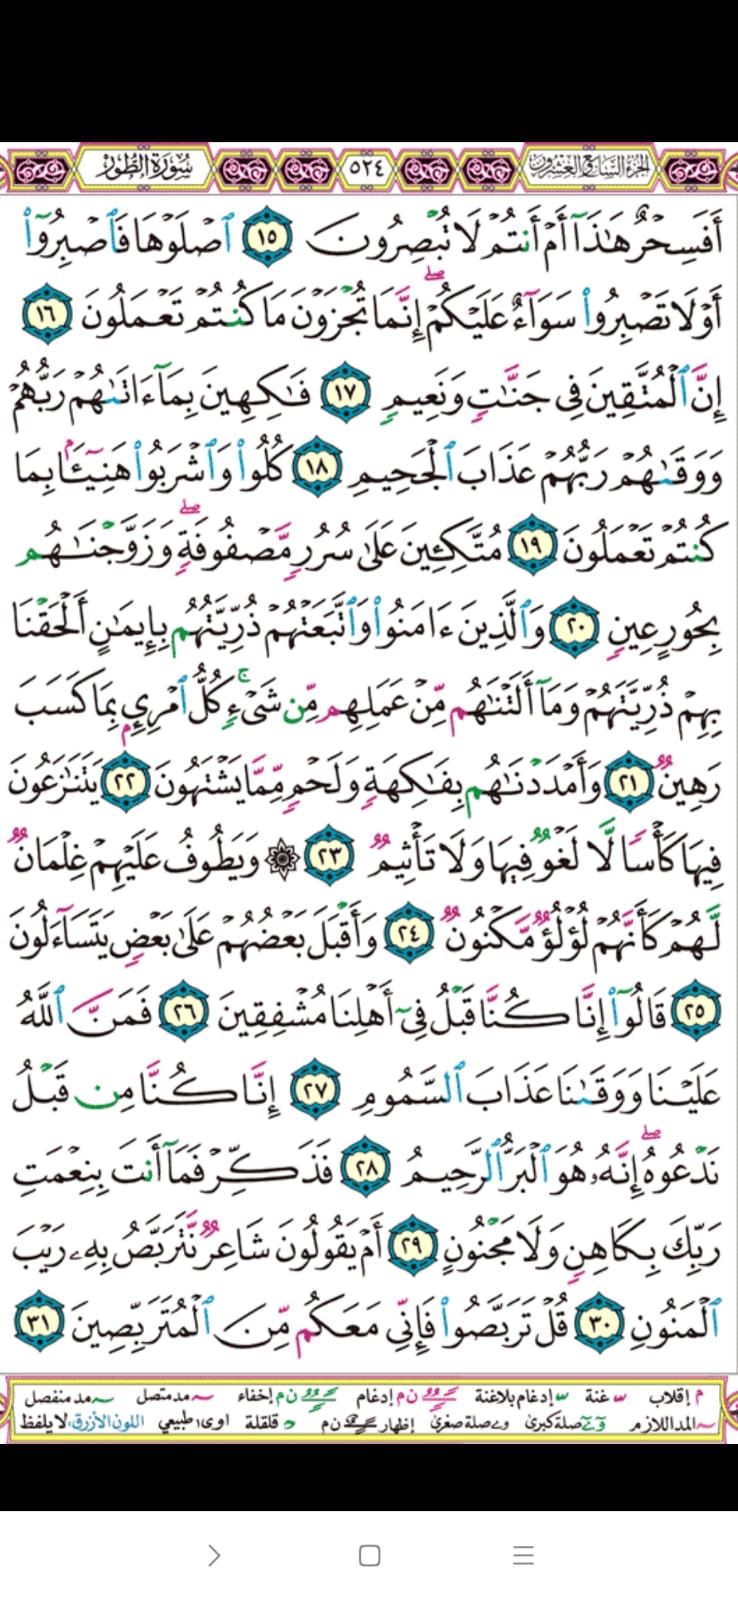 الجزء السابع والعشرون ٥٢٤ سورة الطور
أَفَسِحْرٌ هَٰذَآ أَمْ أَنتُمْ لَا تُبْصِرُونَ ١٥ ٱصْلَوْهَا فَٱصْبِرُوٓا۟
أَوْ لَا تَصْبِرُوا۟ سَوَآءٌ عَلَيْكُمْ ۖ إِنَّمَا تُجْزَوْنَ مَا كُنتُمْ تَعْمَلُونَ ١٦
إِنَّ ٱلْمُتَّقِينَ فِى جَنَّٰتٍ وَنَعِيمٍ ١٧ فَٰكِهِينَ بِمَآ ءَاتَىٰهُمْ رَبُّهُمْ
وَوَقَىٰهُمْ رَبُّهُمْ عَذَابَ ٱلْجَحِيمِ ١٨ كُلُوا۟ وَٱشْرَبُوا۟ هَنِيٓـًٔۢا بِمَا
كُنتُمْ تَعْمَلُونَ ١٩ مُتَّكِـِٔينَ عَلَىٰ سُرُرٍ مَّصْفُوفَةٍ ۖ وَزَوَّجْنَٰهُم
بِحُورٍ عِينٍ ٢٠ وَٱلَّذِينَ ءَامَنُوا۟ وَٱتَّبَعَتْهُمْ ذُرِّيَّتُهُم بِإِيمَٰنٍ أَلْحَقْنَا
بِهِمْ ذُرِّيَّتَهُمْ وَمَآ أَلَتْنَٰهُم مِّنْ عَمَلِهِم مِّن شَىْءٍ ۚ كُلُّ ٱمْرِئٍۭ بِمَا كَسَبَ
رَهِينٌ ٢١ وَأَمْدَدْنَٰهُم بِفَٰكِهَةٍ وَلَحْمٍ مِّمَّا يَشْتَهُونَ ٢٢ يَتَنَٰزَعُونَ
فِيهَا كَأْسًا لَّا لَغْوٌ فِيهَا وَلَا تَأْثِيمٌ ٢٣ ۞ وَيَطُوفُ عَلَيْهِمْ غِلْمَانٌ
لَّهُمْ كَأَنَّهُمْ لُؤْلُؤٌ مَّكْنُونٌ ٢٤ وَأَقْبَلَ بَعْضُهُمْ عَلَىٰ بَعْضٍ يَتَسَآءَلُونَ
٢٥ قَالُوٓا۟ إِنَّا كُنَّا قَبْلُ فِىٓ أَهْلِنَا مُشْفِقِينَ ٢٦ فَمَنَّ ٱللَّهُ
عَلَيْنَا وَوَقَىٰنَا عَذَابَ ٱلسَّمُومِ ٢٧ إِنَّا كُنَّا مِن قَبْلُ
نَدْعُوهُ ۖ إِنَّهُۥ هُوَ ٱلْبَرُّ ٱلرَّحِيمُ ٢٨ فَذَكِّرْ فَمَآ أَنتَ بِنِعْمَتِ
رَبِّكَ بِكَاهِنٍ وَلَا مَجْنُونٍ ٢٩ أَمْ يَقُولُونَ شَاعِرٌ نَّتَرَبَّصُ بِهِۦ رَيْبَ
ٱلْمَنُونِ ٣٠ قُلْ تَرَبَّصُوا۟ فَإِنِّى مَعَكُم مِّنَ ٱلْمُتَرَبِّصِينَ ٣١
م إقلاب غنة إدغام بلاغنة ن م إدغام ن م إخفاء مد متصل مد منفصل
المد اللازم صلة كبرى صلة صغرى إظهار ن م قلقلة اوى طبيعي اللون الأزرق لا يلفظ